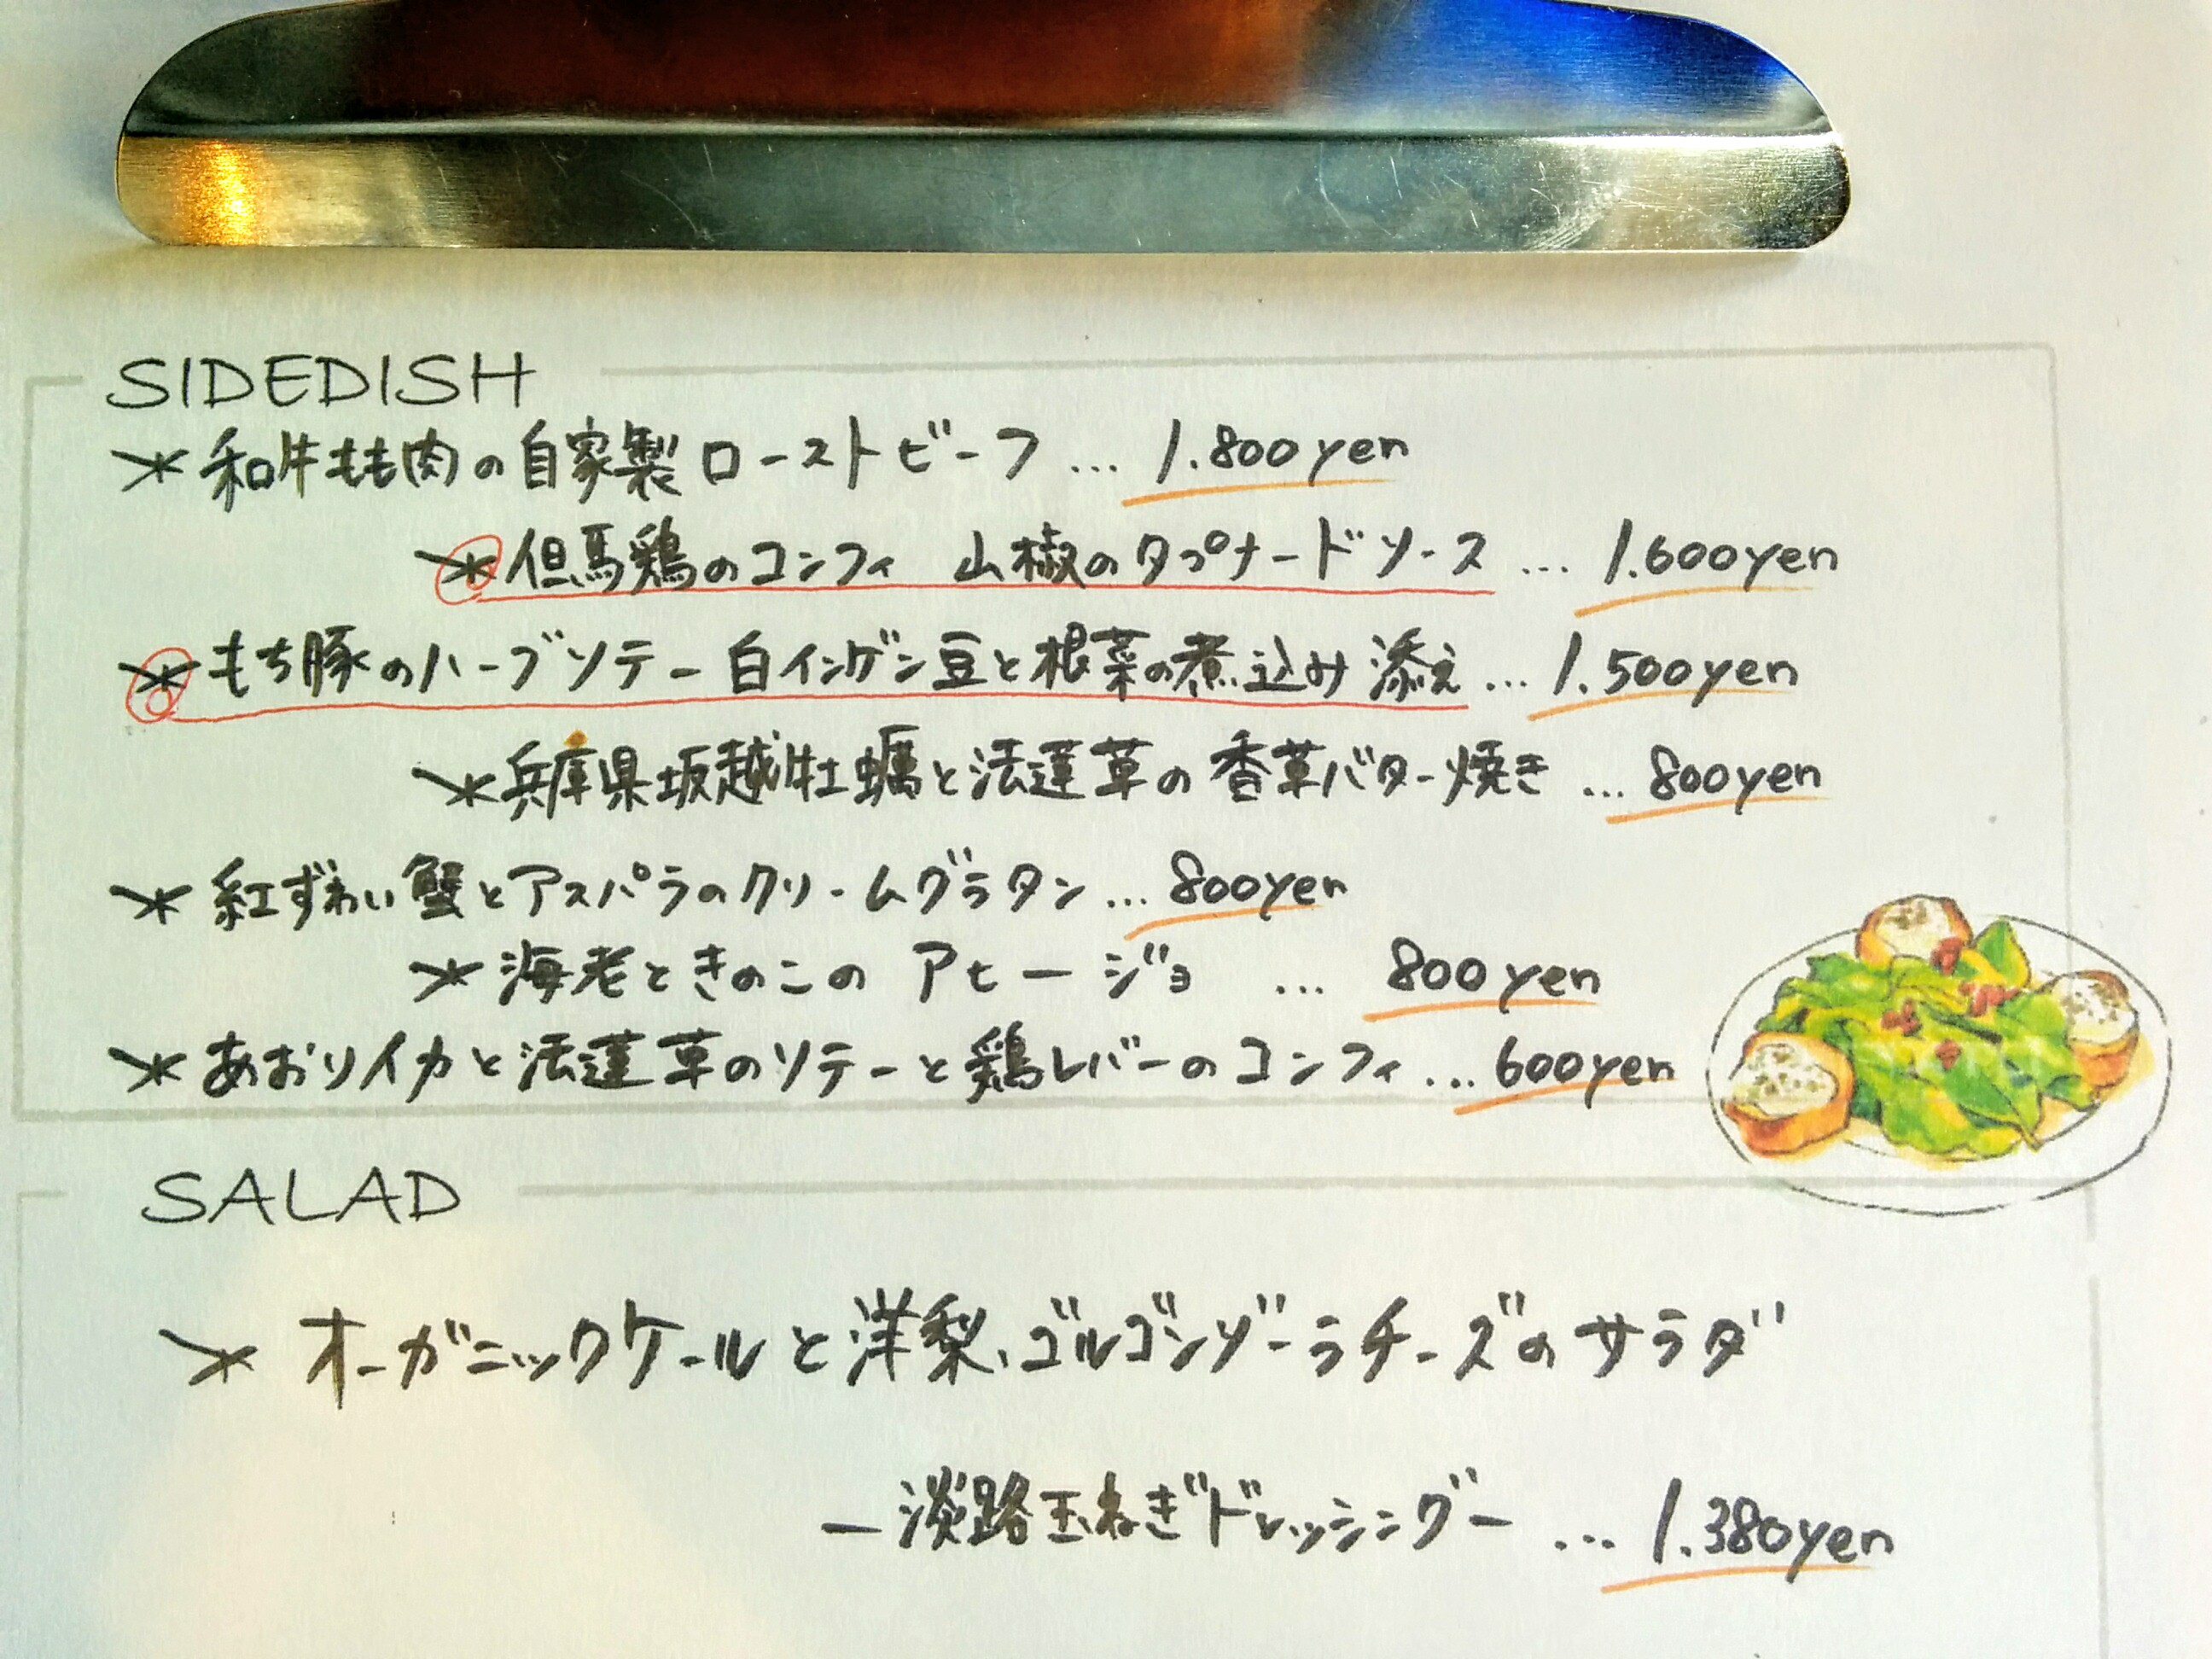 SIDEDISH
* 和牛もも肉の自家製ローストビーフ … 1.800yen
* 但馬鶏のコンフィ 山椒のタプナードソース … 1.600yen
* もち豚のハーブソテー 白インゲン豆と根菜の煮込み 添え … 1.500yen
* 兵庫県坂越牡蠣と法蓮草の香草バター焼き … 800yen
* 紅ずわい蟹とアスパラのクリームグラタン … 800yen
* 海老ときのこの アヒージョ … 800yen
* あおりイカと法蓮草のソテーと鶏レバーのコンフィ … 600yen
SALAD
* オーガニックケールと洋梨、ゴルゴンゾーラチーズのサラダ
ー淡路玉ねぎドレッシングー … 1.380yen